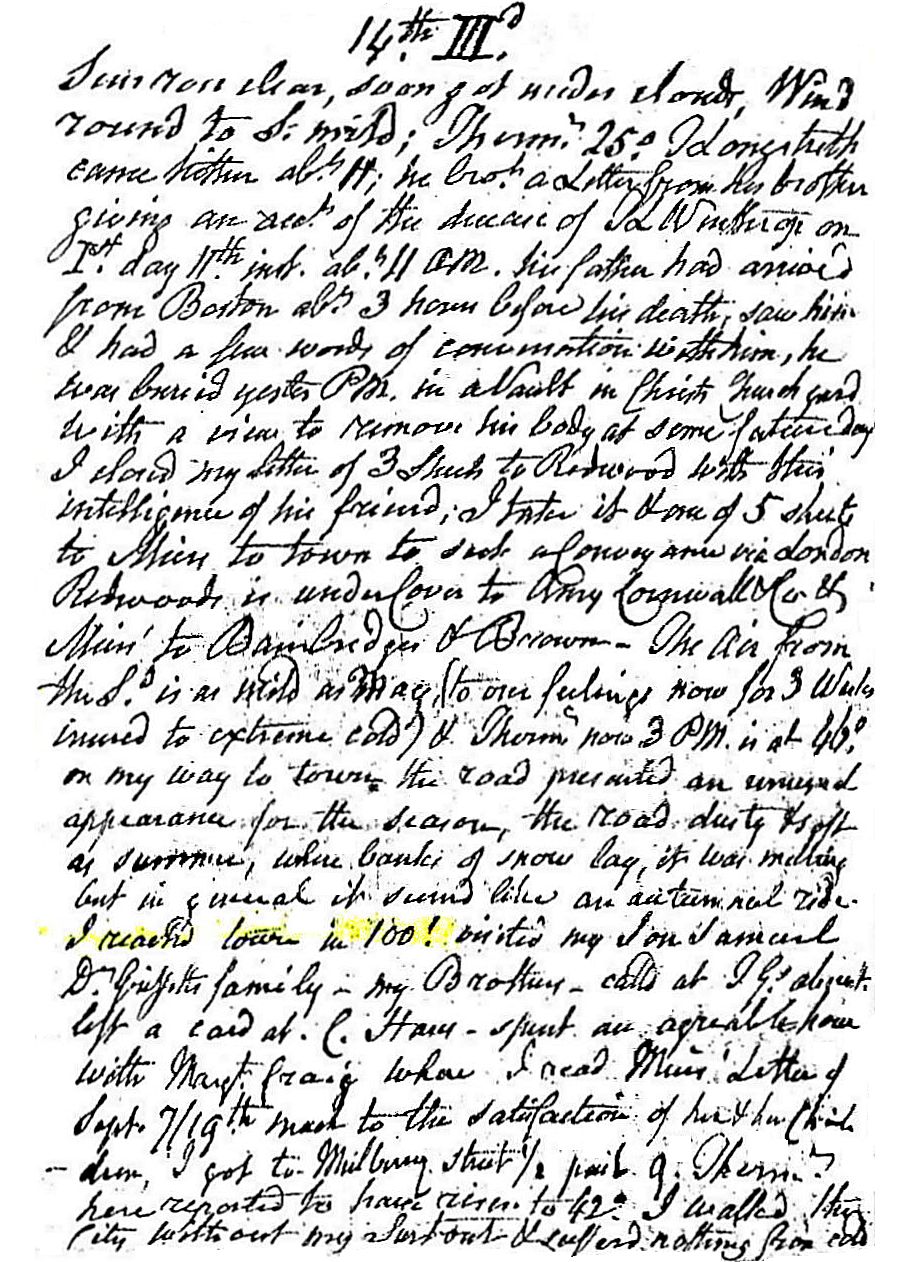 14.th III.d
Sun rose clear, soon got under clouds, Wind
round to S. mild; Therm.r 25.o Longstreth
came hither ab.t 11; he bro.t a Letter from his brother
giving an acc.t of the decease of Winthrop on
1.st day 11th inst. ab.t 11 AM. his father had arrived
from Boston ab.t 3 hours before his death, saw him
& had a few words of conversation with him, he
was buried yester PM. in a Vault in Christ Church yard
with a view to remove his body at some future day
I closed my letter of 3 Sheets to Redwood with this
intelligence of his friend; I take it & one of 5 sheets
to Miers to town to seek a Conveyance via London
Redwoods is under Cover to Amy Cornwall & Co &
Miers' to Bainbridges & Brown - The Air from
the S.d is as mild as May (to our feelings now for 3 Weeks
inured to extreme cold) & Therm.r now 3 PM. is at 46.o
on my way to town the road presented an unusual
appearance for the season, the road dusty & soft
as summer, where banks of snow lay, it was melting
but in general it seem'd like an autumnal ride.
I reach'd town in 100! visited my Son Samuel
D.r Griffitts family - my Brothers - call'd at J G.s absent
left a card at C. Hares - spent an agreable hour
with Marg.t Craig where I read Miers' Letter of
Sept. 7/19th much to the satisfaction of her & her Chil-
dren, I got to Mulberry Street 1/2 past 9. Therm.r
here reported to have risen to 42.o I walked the
City without my Surtout & suffer'd nothing from cold